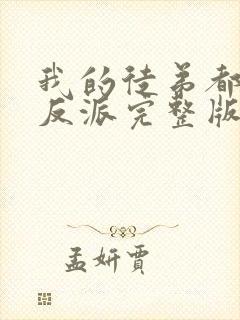 我的徒弟都
反派完整版
孟妍贾